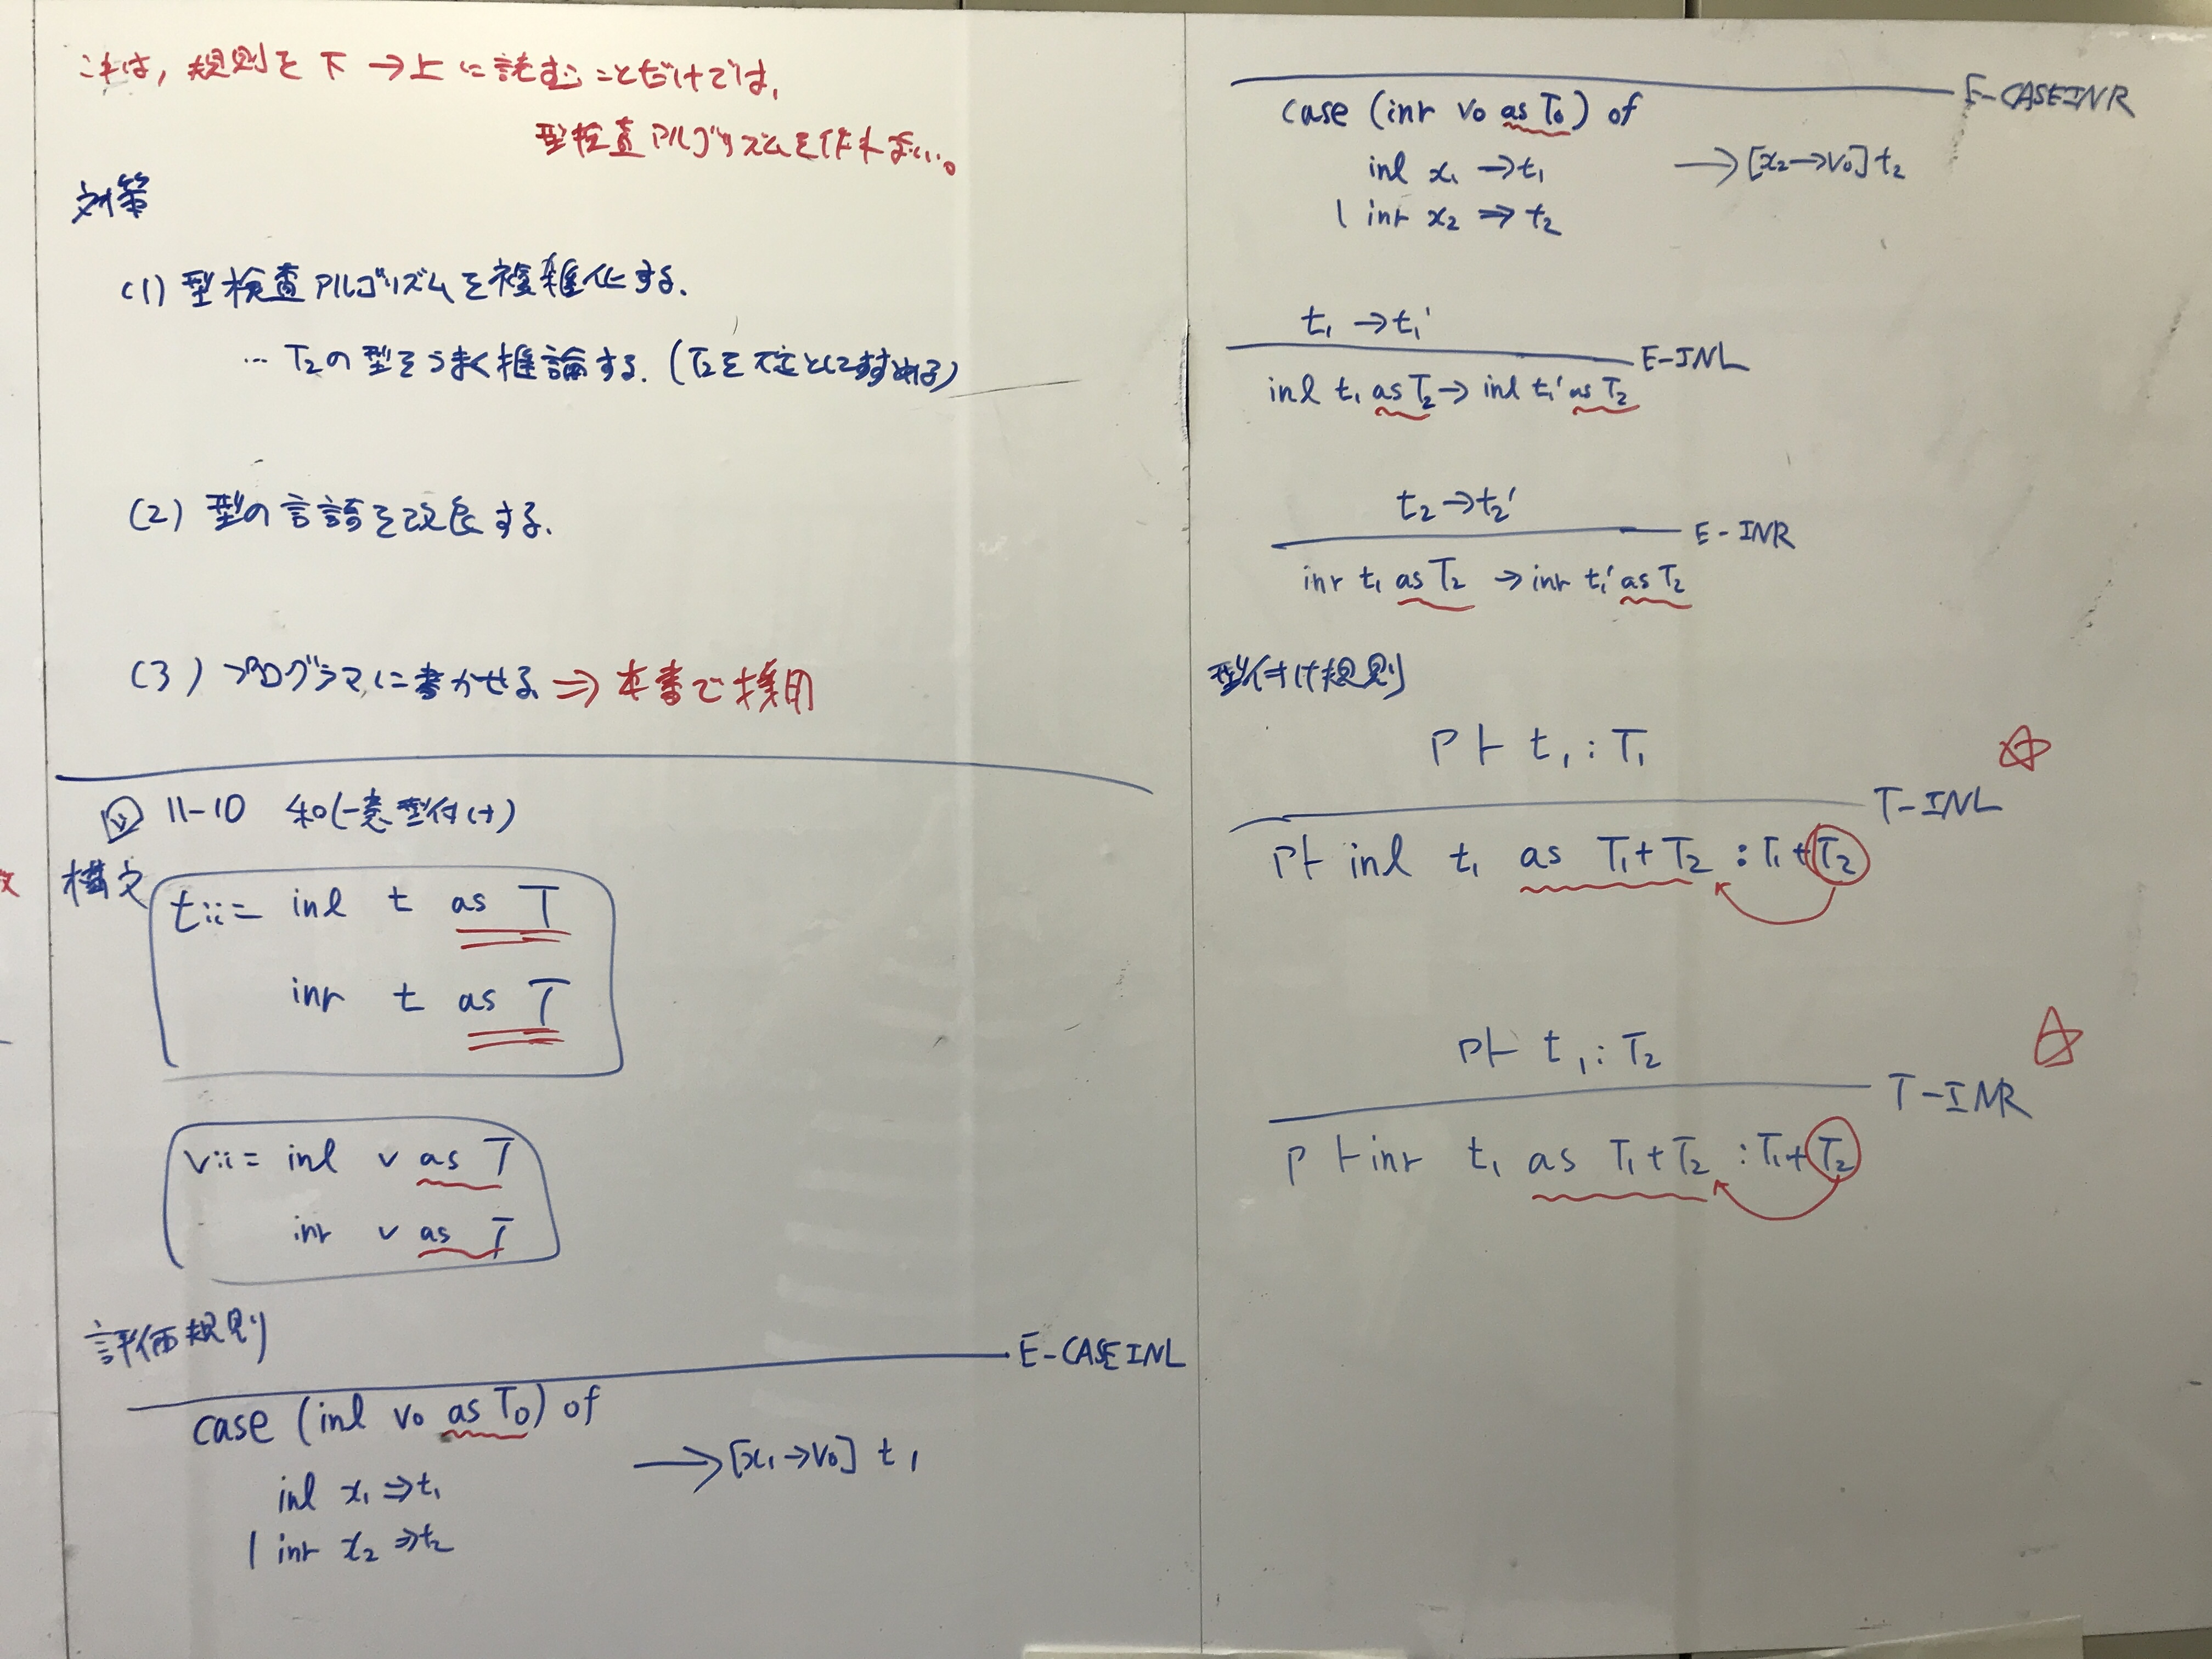 これは, 規則を 下 → 上 に読むことだけでは,
型検査アルゴリズムを作れない。
対策
(1) 型検査アルゴリズムを複雑化する.
… T₂の型をうまく推論する. (T₂を としてすすめる)
(2) 型の言語を改良する.
(3) プログラマに書かせる ⇒ 本書で採用
図 11-10 和(一意型付け)
構文
t::= inl t as T
inr t as T
v::= inl v as T
inr v as T
評価規則
E-CASEINL
case (inl v₀ as T₀) of
inl x₁ ⇒ t₁ → [x₁→v₀] t₁
| inr x₂ ⇒ t₂
E-CASEINR
case (inr v₀ as T₀) of
inl x₁ → t₁ → [x₂→v₀] t₂
| inr x₂ ⇒ t₂
t₁ → t₁'
E-INL
inl t₁ as T₂ → inl t₁' as T₂
t₂ → t₂'
E-INR
inr t₁ as T₂ → inr t₁' as T₂
型付け規則
Γ ⊢ t₁ : T₁
T-INL ☆
Γ ⊢ inl t₁ as T₁+T₂ : T₁+T₂
Γ ⊢ t₁ : T₂
T-INR ☆
Γ ⊢ inr t₁ as T₁+T₂ : T₁+T₂